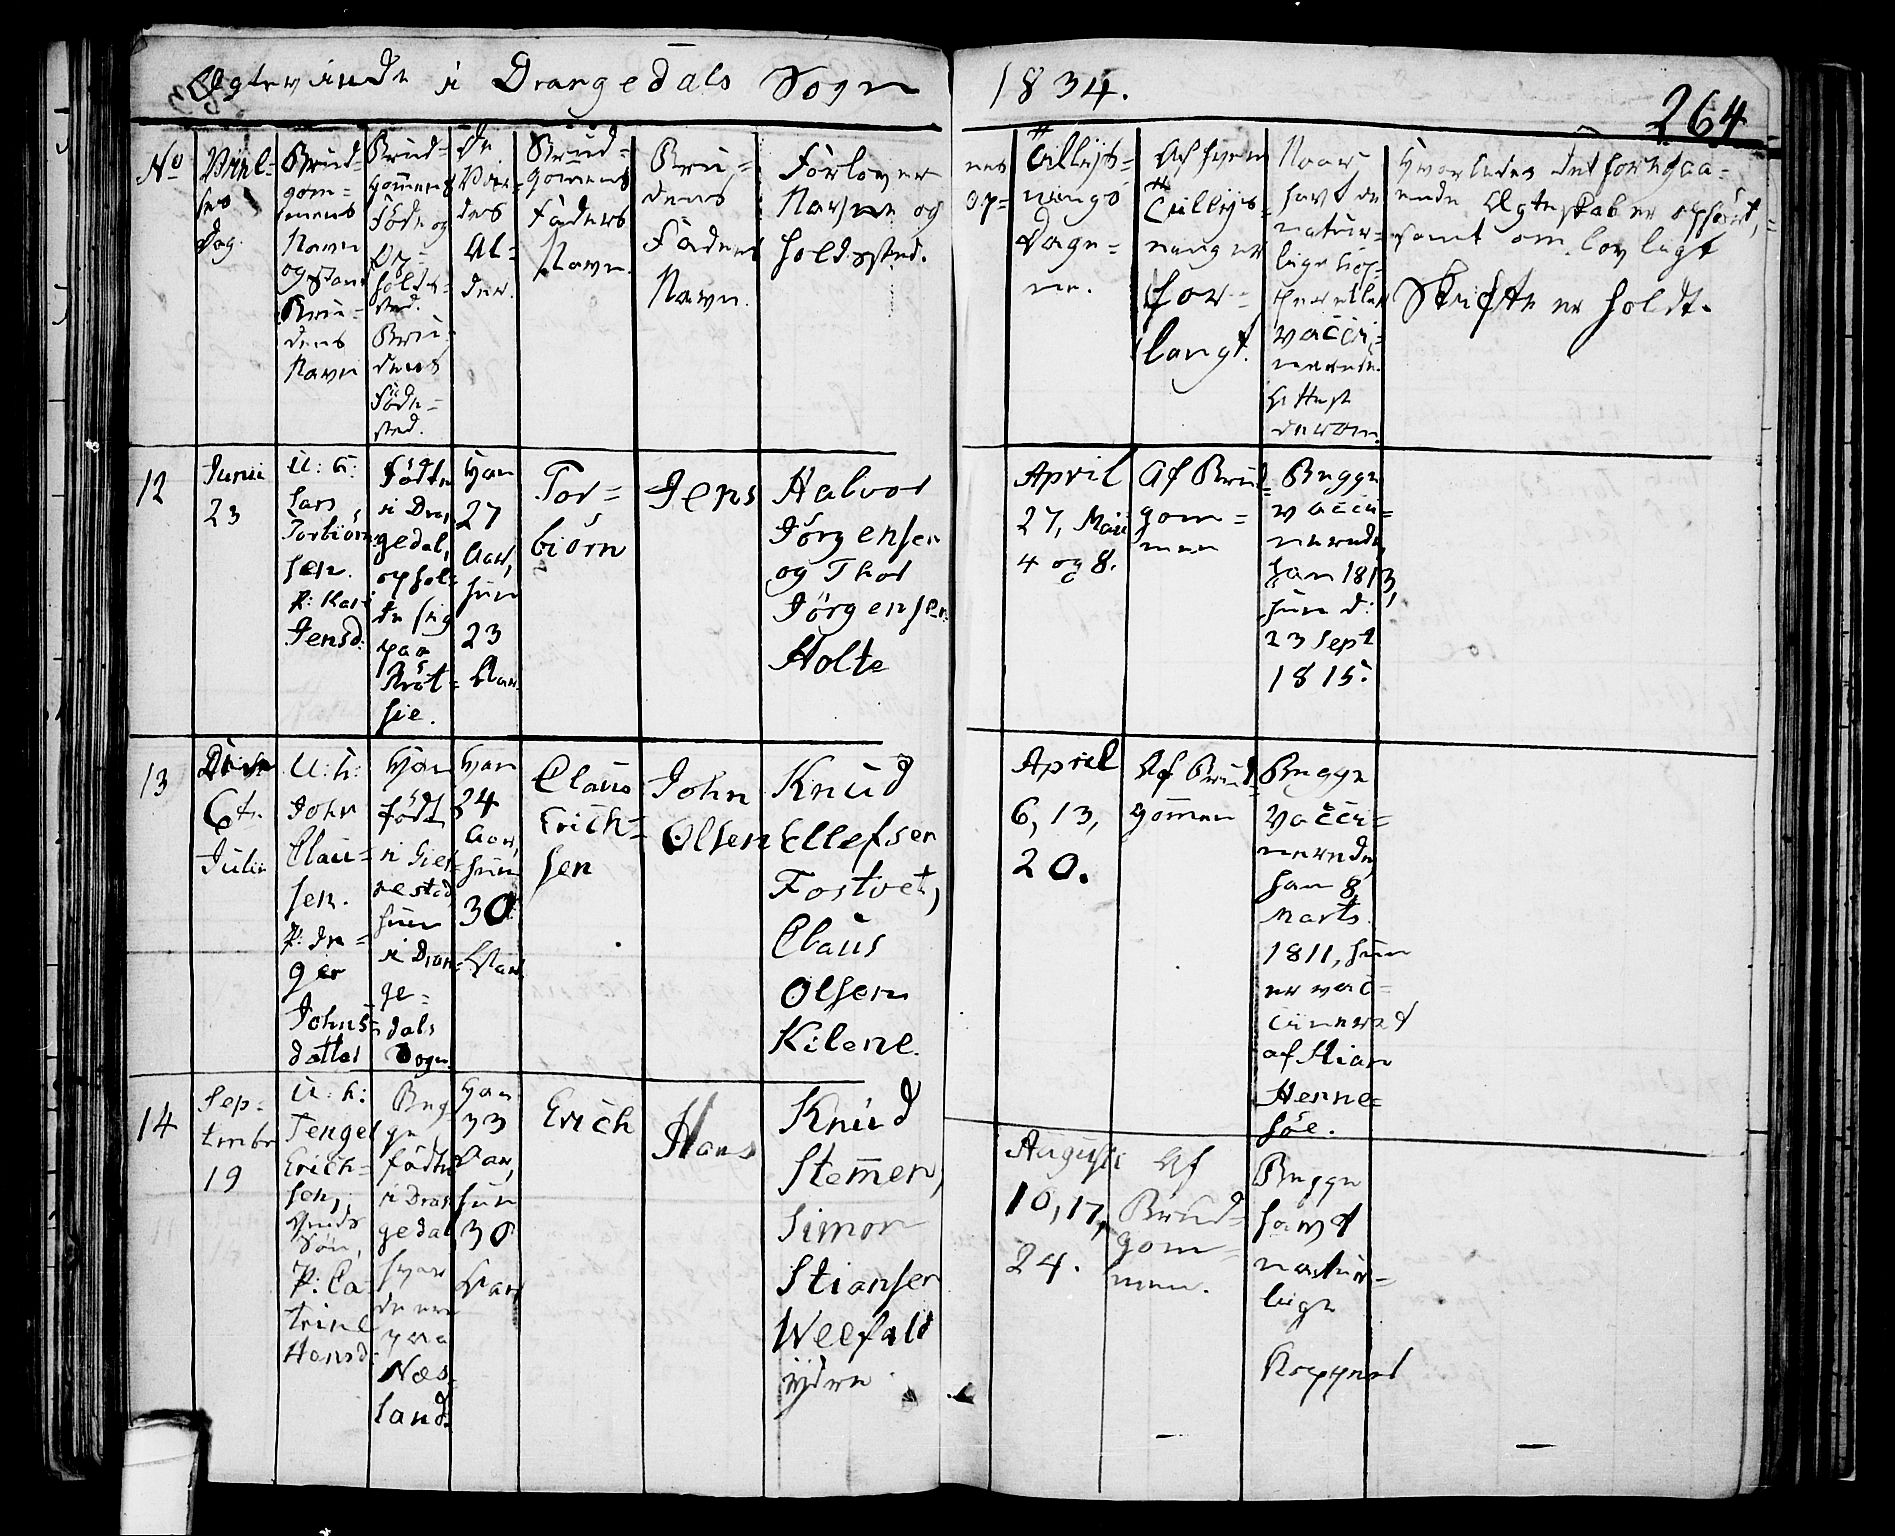 Ægteviede i Drangedals Sogn 1834.
264
No
Vielses
Dag.
Brud-
gom-
mens
Navn
og Stand
Bru-
dens
Navn
Brud-
gommens
Føde og
Op-
holds-
sted.
Bru-
dens
Føde-
sted.
De
Vor-
des
Al-
der.
Brud-
gomens
Faders
Navn.
Bru-
dens
Faders
Navn.
Forlover
Navne og
Holdssted.
Tillÿs-
nings
Dage-
ne.
Af hvem
Tillÿs-
ning er
for-
langt.
Naar
havt de
natur-
lige Kop-
per eller
vacci-
nerede.
Attest
derom.
Hvorledes det foregaa-
ende Ægteskab er ophørt,
samt om lovligt
Skifte er holdt.
12
Junii
23
U: K:
Lars
Torbiørn-
sen.
P: Kari
Jensd:
Fødte
i Dran-
gedal,
ophol-
de sig
paa
Krot-
sie.
Han
27
Aar,
hun
23
Aar.
Tor-
biørn
Jens
Halvor
Jörgensen
og Thor
Jörgensen
Holte
April
27, Maii
4 og 8.
Af Brud-
gom-
men
Begge
vacci-
nerede,
han 1813,
hun d:
23 Sept
1815.
13
Den
6te
Julii
U: K:
John
Clau-
sen.
P: In-
ger
Johns-
datter
Han
født
i Gier-
restad,
hun
i Dran-
ge-
dals
Sogn
Han
24
Aar,
hun
30
Aar.
Claus
Erich-
sen
John
Olsen
Knud
Ellefsen
Fostvet,
Claus
Olsen
Kilene.
April
6, 13,
20.
Af Brud-
gomen
Begge
vacci-
nerede,
han 8
Marts
1811, hun
er vac-
cineret
af Stian
Henne-
søe.
14
Sep-
tember
19
U: K:
Tengel
Erich-
sen,
P: Ca-
trine
Hansd:
Beg-
ge
fødte
i Dran-
gedal
paa
Næs-
land.
Han
33
Aar,
hun
30
Aar
Erich
Hans
Knud
Stemen,
Simon
Stiansen
Weefald
ÿdre
Augusti
10, 17,
24.
Af
Brud-
gom-
men.
Begge
havt
natur-
lige
Kopper